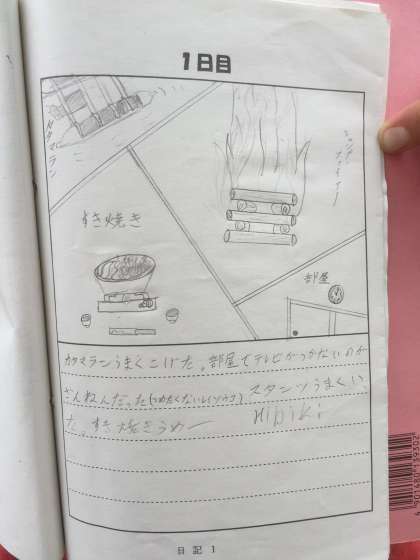 1日目
カタマラン
キャンプ
ファイヤー
すき焼き
部屋
カタマランうまくこげた。部屋でテレビがつかないのが
ざんねんだった スタンツうまくいっ
た。すき焼きうめー Hibiki
日記 1